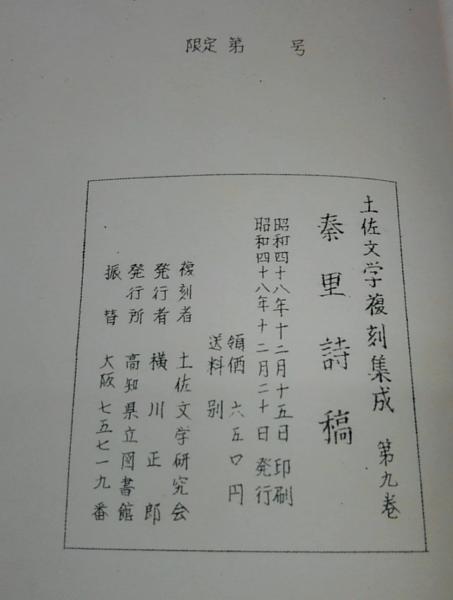 限定 第 号
土佐文学複刻集成 第九巻
秦里詩稿
昭和四十八年十二月十五日 印刷
昭和四十八年十二月二十日 発行
領価 六五〇円
送料 別
複刻者 土佐文学研究会
発行者 横川正郎
発行所 高知県立図書館
振替 大阪 七五七一九番